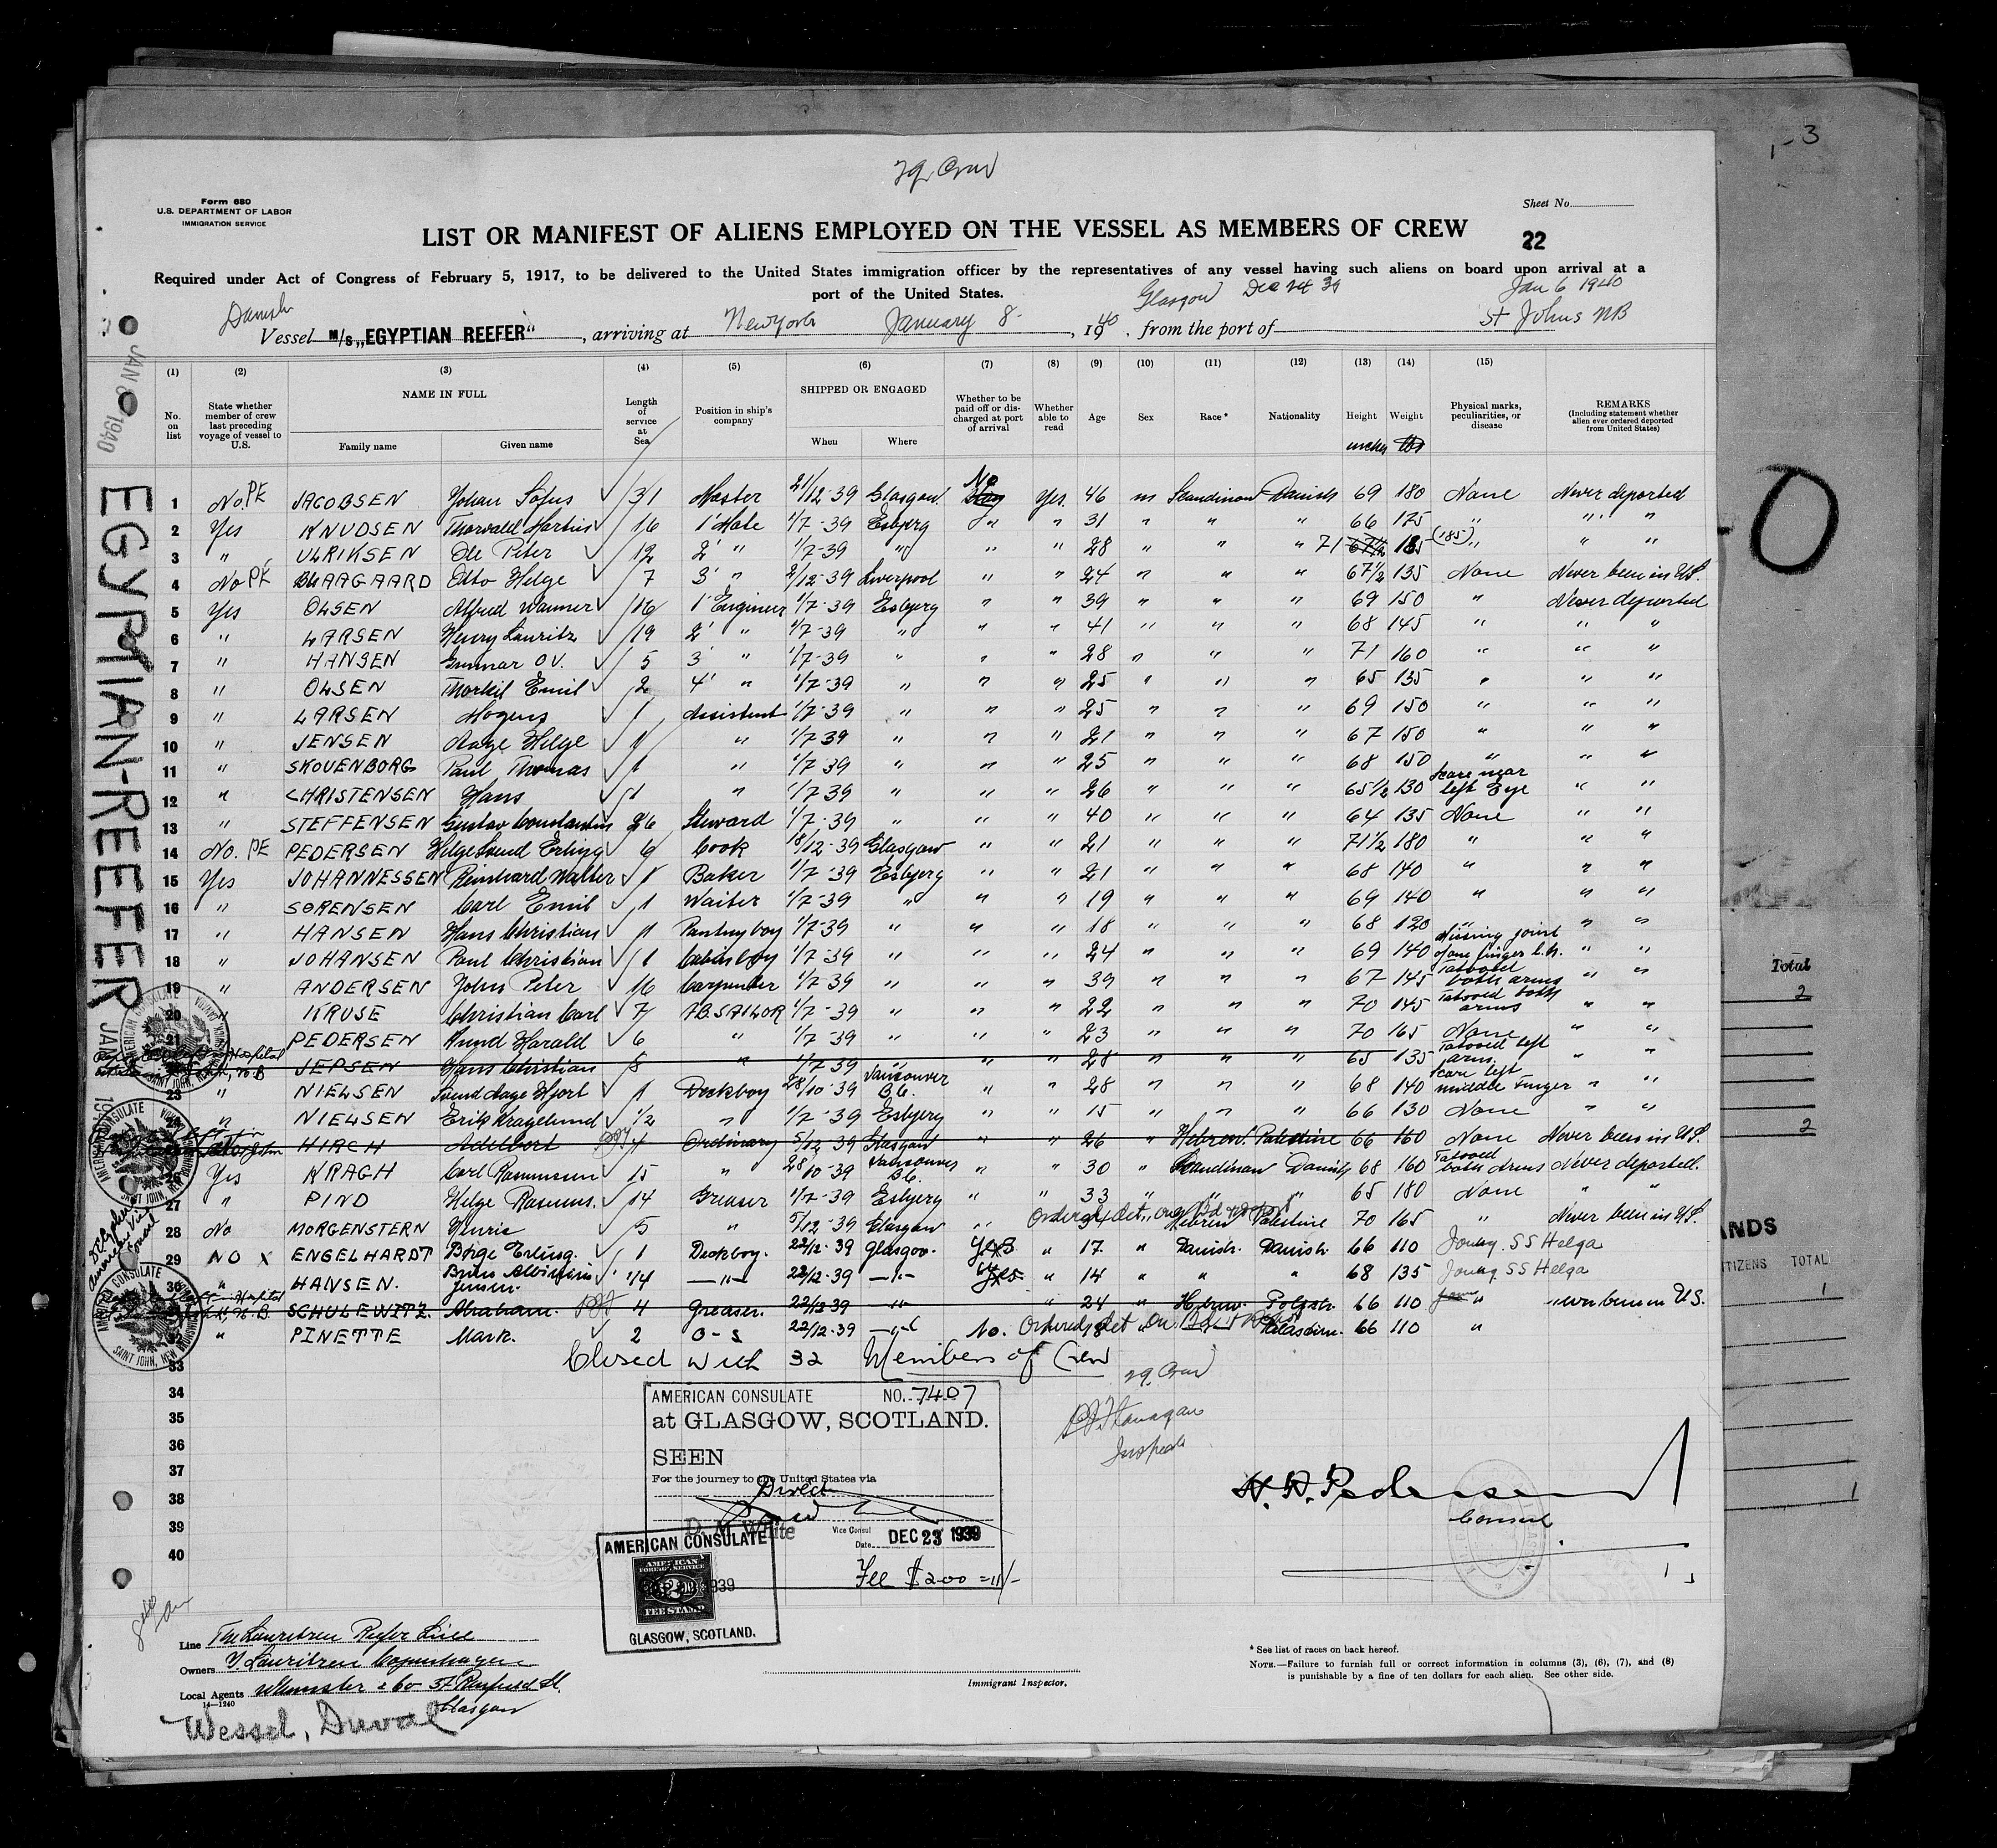 29 Crew
1-3
Form 680
U.S. DEPARTMENT OF LABOR
IMMIGRATION SERVICE
Sheet No.
LIST OR MANIFEST OF ALIENS EMPLOYED ON THE VESSEL AS MEMBERS OF CREW
22
Required under Act of Congress of February 5, 1917, to be delivered to the United States immigration officer by the representatives of any vessel having such aliens on board upon arrival at a
port of the United States.
Glasgow Dec 24 39 Jan 6 1940
Danish
Vessel M/s „EGYPTIAN REEFER", arriving at New York January 8, 1940, from the port of St Johns NB
JAN 8 1940
EGYPTIAN-REEFER JAN
(1) (2) (3) (4) (5) (6) (7) (8) (9) (10) (11) (12) (13) (14) (15)
No. on list
State whether member of crew last preceding voyage of vessel to U.S.
NAME IN FULL
Family name Given name
Length of service at Sea
Position in ship's company
SHIPPED OR ENGAGED
When Where
Whether to be paid off or discharged at port of arrival
Whether able to read
Age Sex Race* Nationality Height Weight
inches lbs
Physical marks, peculiarities, or disease
REMARKS
(Including statement whether alien ever ordered deported from United States)
1 No. PE JACOBSEN Johan Sofus 31 Master 21/12-39 Glasgow No Yes 46 m Scandinav Danish 69 180 None Never deported
2 Yes KNUDSEN Thorvald Martin 16 1' Mate 1/7-39 Esbjerg " " 31 " " " 66 175 " " "
3 " ULRIKSEN Ole Peter 12 2' " 1/7-39 " " " 28 " " " 71 67½ 185 (185) " " "
4 No PE BLAAGAARD Otto Helge 7 3' " 2/12-39 Liverpool " " 24 " " " 67½ 135 None Never been in US.
5 Yes OLSEN Alfred Wanner 16 1' Engineer 1/7-39 Esbjerg " " 39 " " " 69 150 " Never deported
6 " LARSEN Henry Lauritz 19 2' " 1/7-39 " " " 41 " " " 68 145 " " "
7 " HANSEN Gunnar O.V. 5 3' " 1/7-39 " " " 28 " " " 71 160 " " "
8 " OLSEN Thorkil Emil 2 4' " 1/7-39 " " " 25 " " " 65 135 " " "
9 " LARSEN Mogens 1 Assistent 1/7-39 " " " 25 " " " 69 150 " " "
10 " JENSEN Aage Helge 1 " 1/7 39 " " " 21 " " " 67 150 " " "
11 " SKOUENBORG Paul Thomas 1 " 1/7 39 " " " 25 " " " 68 150 " " "
12 " CHRISTENSEN Hans 1 " 1/7 39 " " " 26 " " " 65½ 130 Scare near left Eye " "
13 " STEFFENSEN Gustav Constantin 26 Steward 1/7-39 " " " 40 " " " 64 135 None " "
14 No. PE PEDERSEN Helge Svend Erling 6 Cook 18/12-39 Glasgow " " 21 " " " 71½ 180 " " "
15 Yes JOHANNESSEN Reinhard Walter 1 Baker 1/7-39 Esbjerg " " 21 " " " 68 140 " " "
16 " SØRENSEN Carl Emil 1 Waiter 1/7-39 " " " 19 " " " 69 140 " " "
17 " HANSEN Hans Christian 1 Pantryboy 1/7-39 " " " 18 " " " 68 120 " " "
18 " JOHANSEN Paul Christian 1 Cabinboy 1/7-39 " " " 24 " " " 69 140 Missing joint of one finger l.h. " "
19 " ANDERSEN John Peter 16 Carpenter 1/7-39 " " " 39 " " " 67 145 Tatooed both arms " "
20 " KRUSE Christian Carl 7 AB. SAILOR 1/7-39 " " " 22 " " " 70 145 Tatooed both arms " "
21 PEDERSEN Knud Harald 6 " 1/7-39 " " " 23 " " " 70 165 None " "
Hospital N.B JEPSEN Hans Christian 8 " 1/7 39 " " " 28 " " " 65 135 Tatooed left arm. " "
23 " NIELSEN Svend Aage Hjort 1 Deckboy 28/10-39 Vancouver B.C. " " 28 " " " 68 140 Scare left middle Finger " "
24 " NIELSEN Erik Kragelund 1/2 " 1/7-39 Esbjerg " " 15 " " " 66 130 None " "
HIRCH Adelbert 4 Ordinary 5/12 39 Glasgow " " 26 " Hebrew Palestine 66 160 None Never been in US.
26 Yes KRAGH Carl Rasmussen 15 " 28/10-39 Vancouver B.C. " " 30 " Scandinav Danish 68 160 Tatooed both Arms Never deported.
27 " PIND Helge Rasmus. 14 Greaser 1/7-39 Esbjerg " " 33 " " " 65 180 None " "
28 No MORGENSTERN Henric 5 " 5/12-39 Glasgow " Ordered det. on 34 Hebrew Palestine 70 165 " Never been in US.
29 NO X ENGELHARDT Børge Erling. 1 Deckboy. 22/12-39 Glasgow. Yes " 17 " Danish. Danish. 66 110 SS Helga
30 " HANSEN. Jensen. 14 —"— 22/12-39 —"— Yes " 14 " " " 68 135 SS Helga
Hospital N.B. SCHULEWITZ. Abraham. 4 Greaser. 22/12 39 " " 24 " Hebrew. Polish. 66 110 " never been in U.S.
32 " PINETTE Mark. 2 O-S 22/12-39 —"— No. Ordered det on 18 66 110 "
33 Closed with 32 Members of Crew
34 29. Crew
35
36 Inspector
37
38
39
40
AMERICAN CONSULATE NO. 7407
at GLASGOW, SCOTLAND.
SEEN
For the journey to the United States via
Direct
D. M. White
Vice Consul
Date DEC 23 1939
Fee $2.00 = 11/-
AMERICAN CONSULATE
AMERICAN FOREIGN SERVICE
2
FEE STAMP
GLASGOW, SCOTLAND.
H. A. Pedersen
Consul
AMERICAN CONSULATE
SAINT JOHN, NEW BRUNSWICK, CANADA
American Vice Consul
Line The Lauritzen Reefer Line
Owners J Lauritzen Copenhagen
Local Agents & Co St.
Glasgow
14—1240
Wessel, Duval
Immigrant Inspector.
* See list of races on back hereof.
NOTE.—Failure to furnish full or correct information in columns (3), (6), (7), and (8)
is punishable by a fine of ten dollars for each alien. See other side.
-0
Total
2
2
ANDS
TIZENS TOTAL
1
1